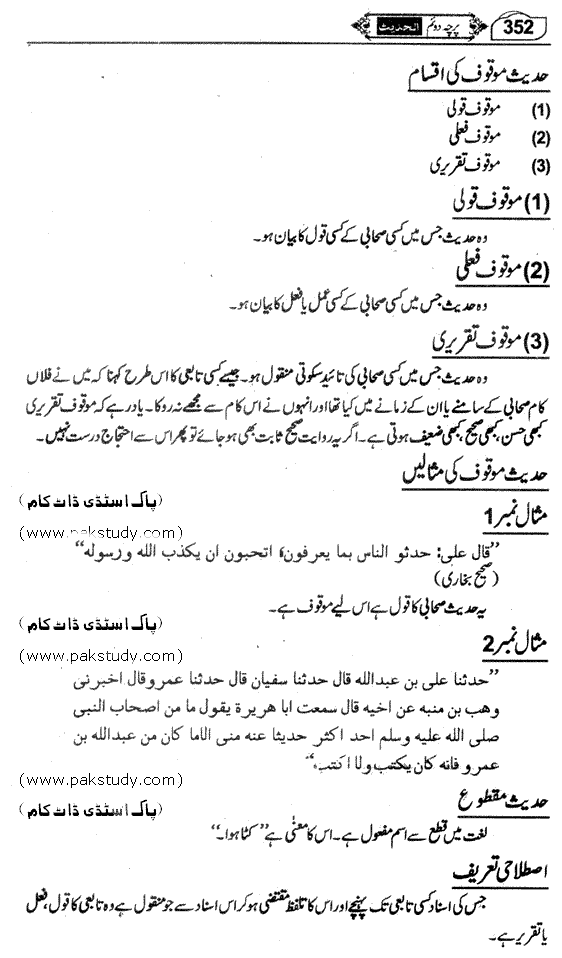 352 پرچہ دوئم الحدیث
حدیث موقوف کی اقسام
(1) موقوف قولی
(2) موقوف فعلی
(3) موقوف تقریری
(1) موقوف قولی
وہ حدیث جس میں کسی صحابی کے کسی قول کا بیان ہو۔
(2) موقوف فعلی
وہ حدیث جس میں کسی صحابی کے کسی عمل یا فعل کا بیان ہو۔
(3) موقوف تقریری
وہ حدیث جس میں کسی صحابی کی تائید سکوتی منقول ہو۔ جیسے کسی تابعی کا اس طرح کہنا کہ میں نے فلاں
کام صحابی کے سامنے یا ان کے زمانے میں کیا تھا اور انہوں نے اس کام سے مجھے نہ روکا۔ یاد رہے کہ موقوف تقریری
کبھی حسن، کبھی صحیح، کبھی ضعیف ہوتی ہے۔ اگر یہ روایت صحیح ثابت بھی ہو جائے تو پھر اس سے احتجاج درست نہیں۔
حدیث موقوف کی مثالیں
(پاک اسٹڈی ڈاٹ کام)
مثال نمبر 1
(www.pakstudy.com)
”قال علی: حدثو الناس بما یعرفون، اتحبون ان یکذب الله ورسوله“
(صحیح بخاری)
یہ حدیث صحابی کا قول ہے اس لیے موقوف ہے۔
(پاک اسٹڈی ڈاٹ کام)
مثال نمبر 2
(www.pakstudy.com)
”حدثنا علی بن عبدالله قال حدثنا سفیان قال حدثنا عمرو قال اخبرنی
وهب بن منبه عن اخیه قال سمعت ابا هریرة یقول ما من اصحاب النبی
صلی الله علیه وسلم احد اکثر حدیثا عنه منی الاما کان من عبدالله بن
عمرو فانه کان یکتب ولا اکتب“
(www.pakstudy.com)
حدیث مقطوع
(پاک اسٹڈی ڈاٹ کام)
لغت میں قطع سے اسم مفعول ہے۔ اس کا معنٰی ہے ”کٹا ہوا۔“
اصطلاحی تعریف
جس کی اسناد کسی تابعی تک پہنچے اور اس کا تلفظ مقتضی ہو کر اس اسناد سے جو منقول ہے وہ تابعی کا قول، فعل
یا تقریر ہے۔